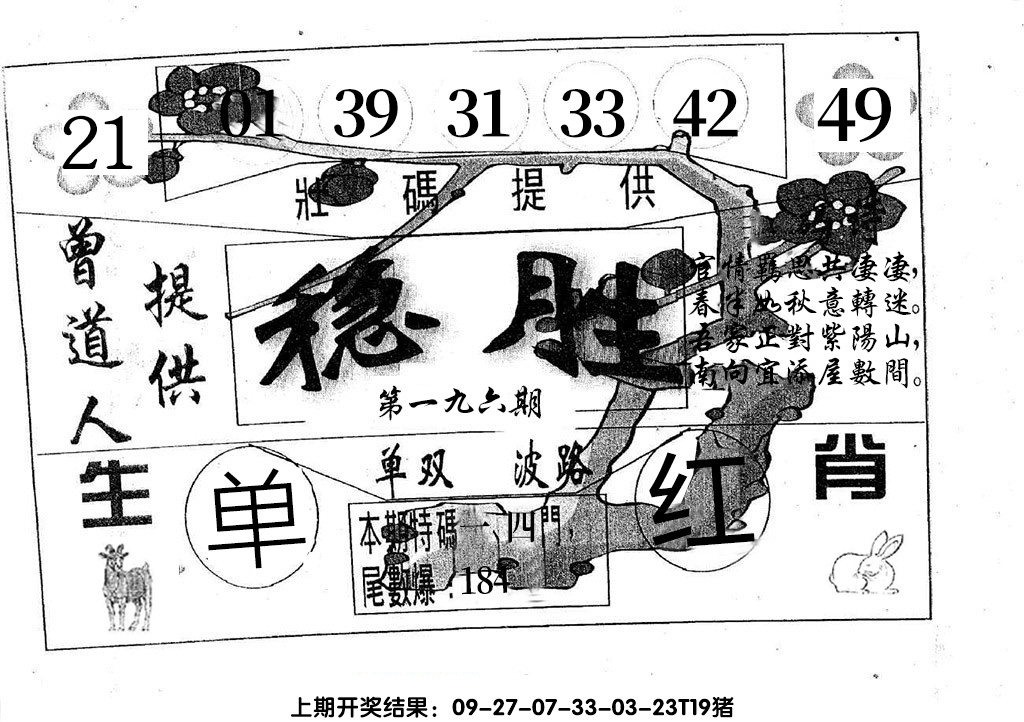 21 01 39 31 33 42 49
壯碼提供
曾道人
提供
特
官情羁思共凄凄，
春半如秋意轉迷。
吾家正對紫陽山，
南向宜添屋數間。
稳胜
第一九六期
单双 波路
生 肖
单 红
本期特碼一、四門，
尾數爆：184
上期开奖结果：09-27-07-33-03-23T19猪